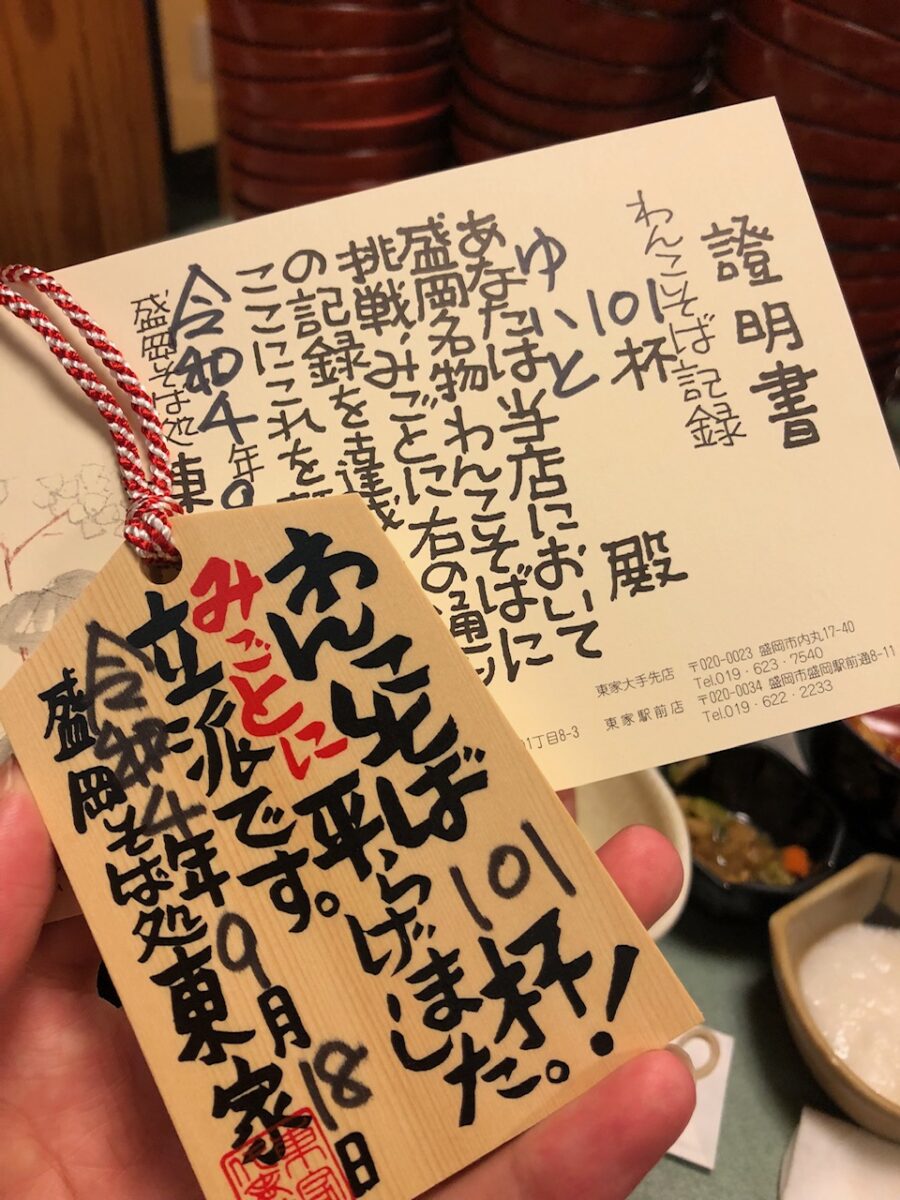 證明書
わんこそば記録
101杯
ゆいと 殿
あなたは当店において
盛岡名物わんこそばに
挑戦、みごとに右の通
の記録を達成
ここにこれを
令和4年9
盛岡そば処 東
東家大手先店 〒020-0023 盛岡市内丸17-40
Tel.019・623・7540
1丁目8-3 東家駅前店 〒020-0034 盛岡市盛岡駅前通8-11
Tel.019・622・2233
わんこそば101杯!
みごとに平らげました。
立派です。
令和4年9月18日
盛岡そば処 東家